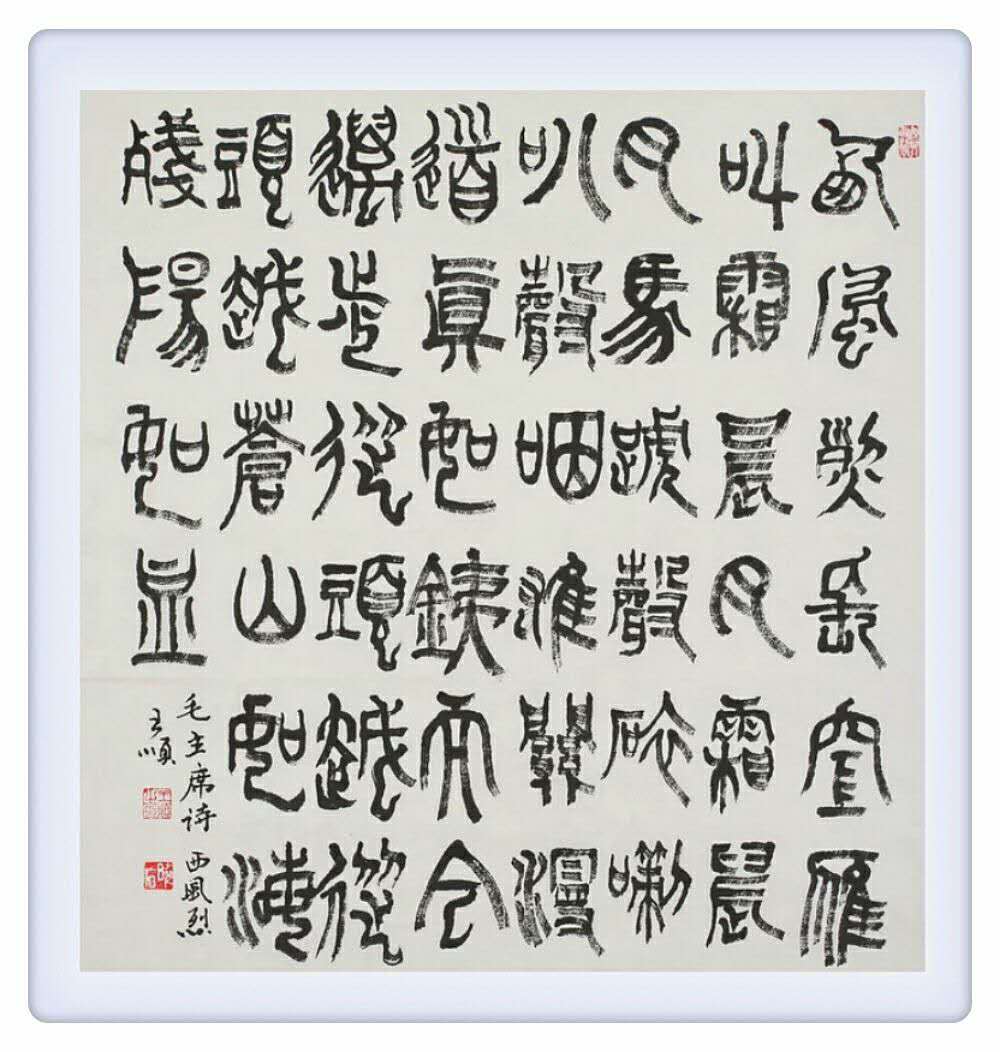 西風烈長空雁
叫霜晨月霜晨
月馬蹏聲碎喇
叭聲咽雄關漫
道眞如銕而今
邁步從頭越從
頭越蒼山如海
殘陽如血
毛主席诗 西風烈
王順